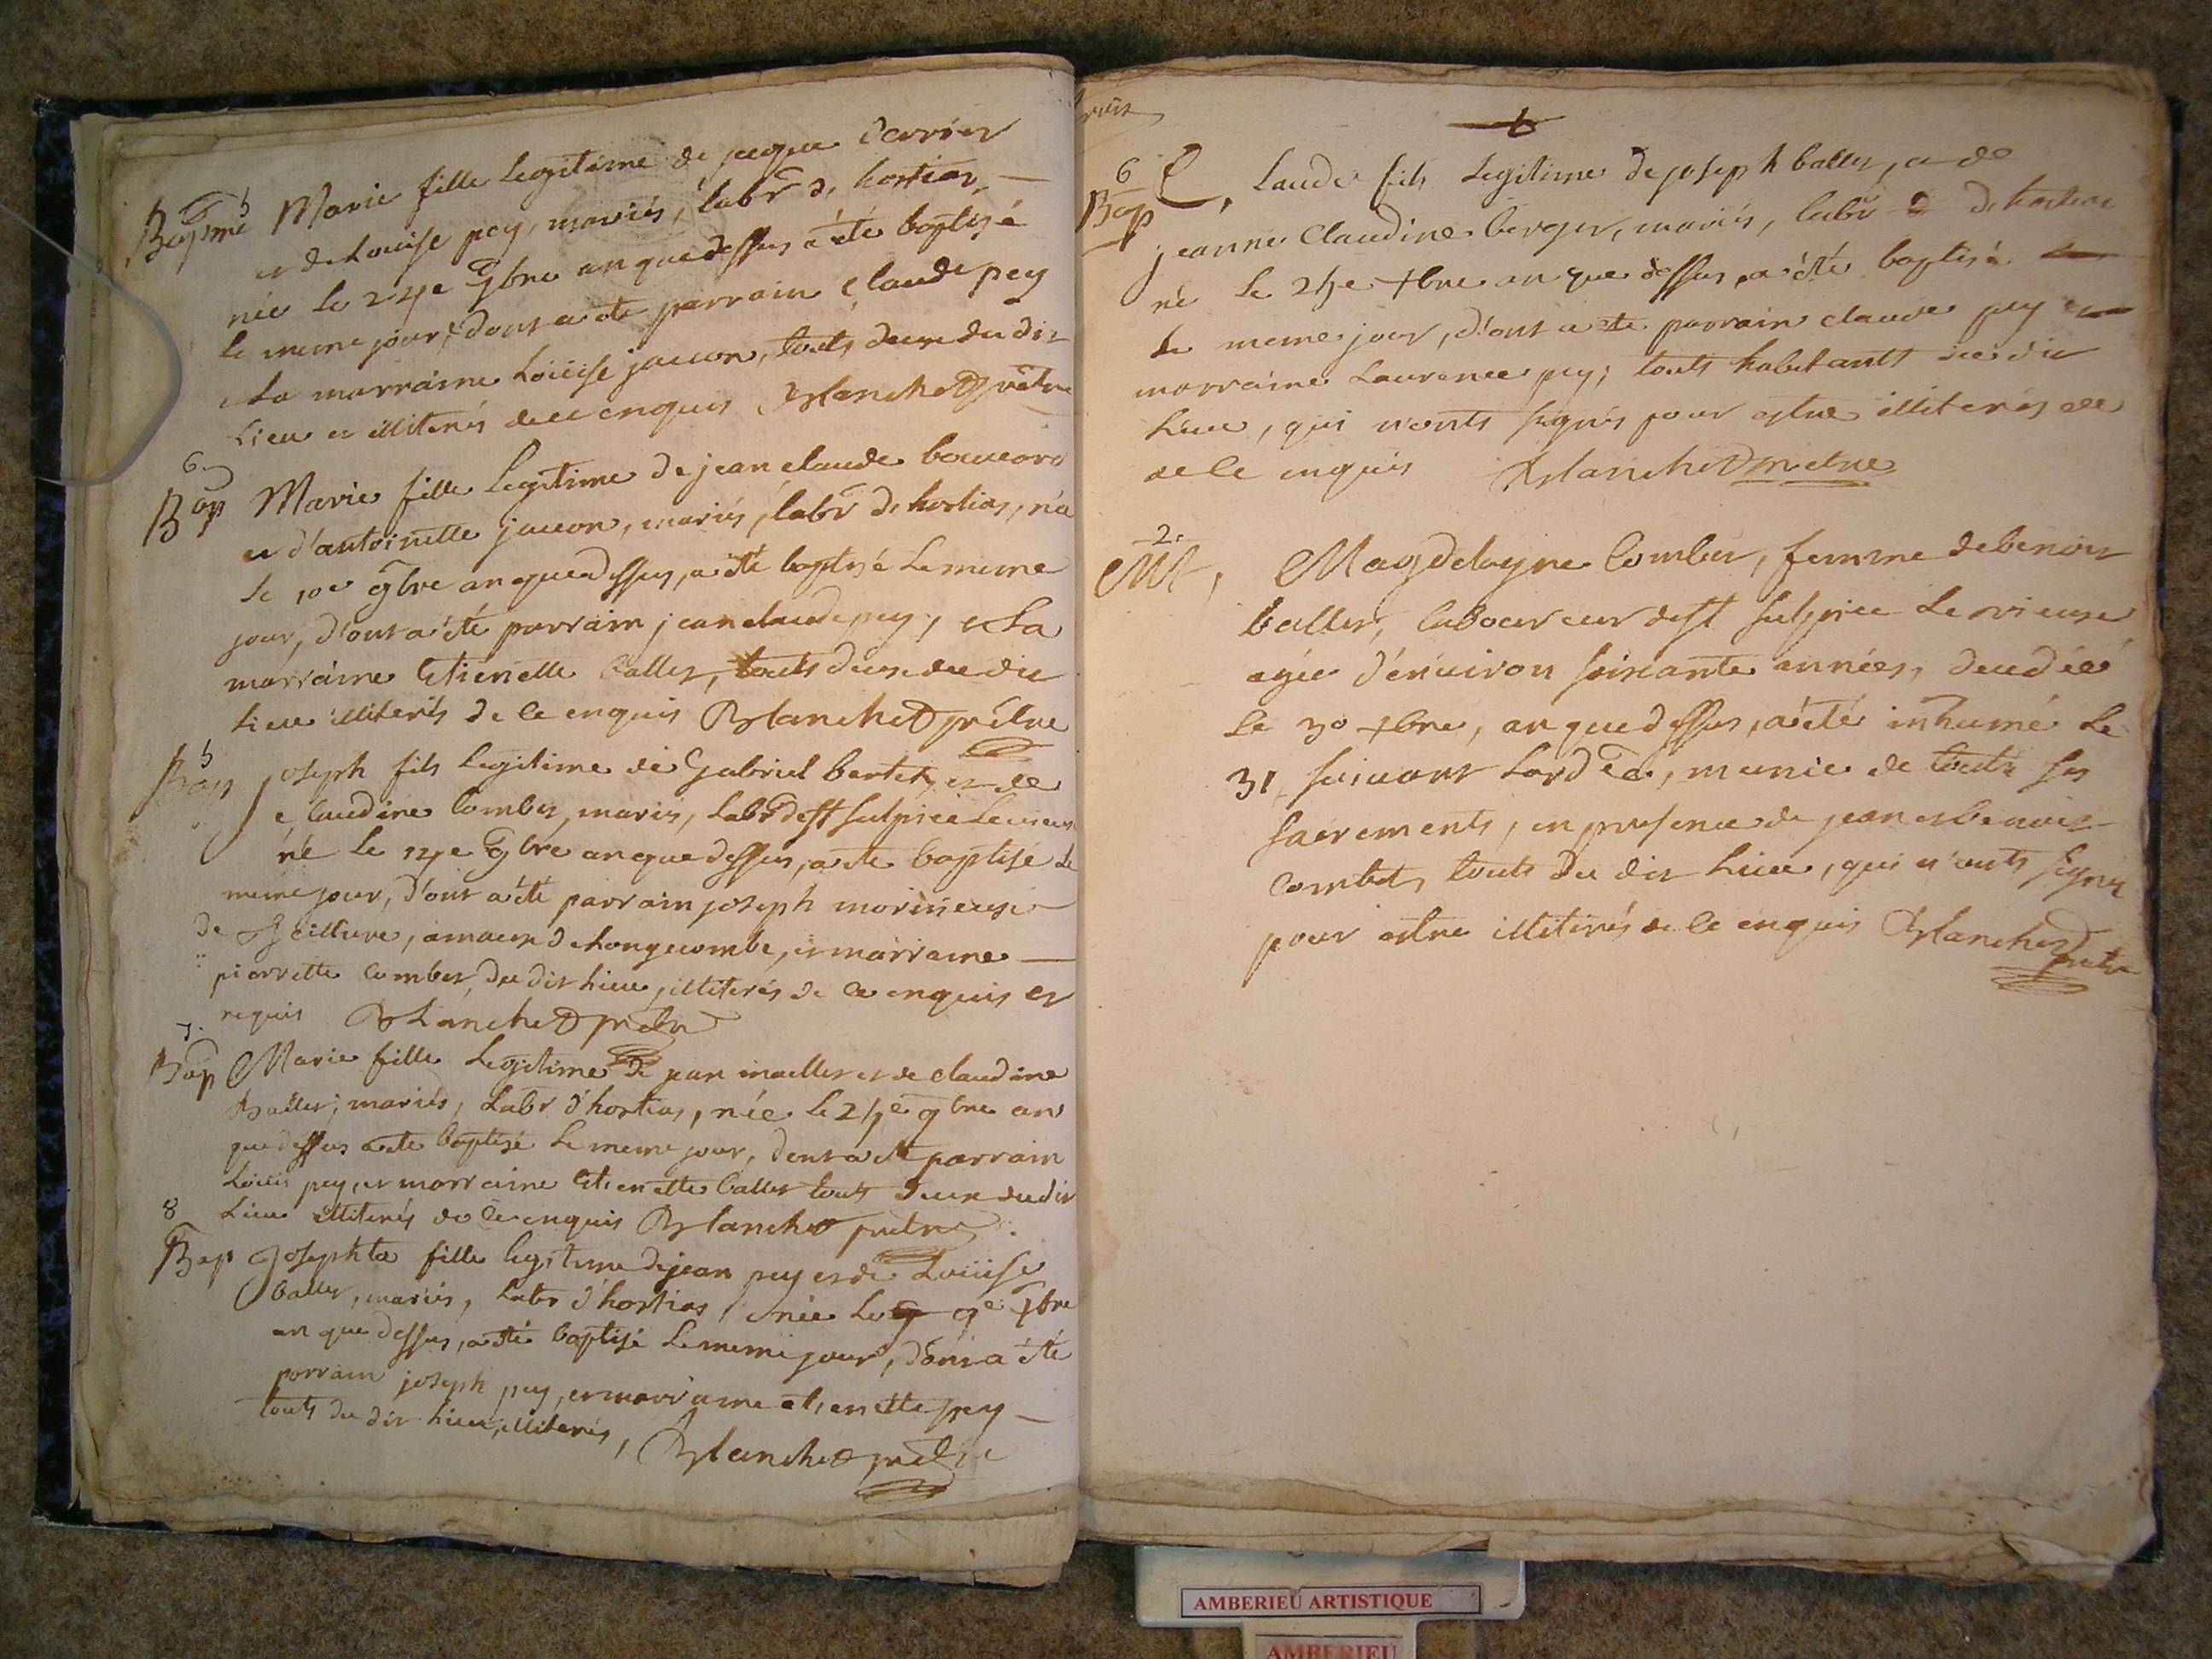 5
Baptme Marie fille legitime de jacque Carrier
et de Louise pey, mariés, labr d'hostias,
née le 24e 9bre an que dessus a été baptisé
le meme jour, dont a été parrain Claude pey
et la marraine Loüise jacson, touts deux du dit
lieu et illiterés de ce enquis Blanchet prêtre
6
Bap Marie fille legitime de jean claude
et d'antoinette, mariés, labr d'hostias, née
le 10e 9bre an que dessus, a été baptisé le meme
jour, d'ont a été parrain jean claude pey, et la
marraine Etienette ballet, touts deux du dit
lieu illiterés de ce enquis Blanchet prêtre
5
Bap joseph fils legitime de Gabriel bertet, et de
claudine Combet, mariés, labr de st sulpice le vieux
né le 14e 9bre an que dessus, a été baptisé le
meme jour, d'ont a été parrain joseph
de, amaux de Longecombe, et marraine
pierrette Combet, du dit Lieu, illiterés de ce enquis et
requis Blanchet prêtre
7.
Bap Marie fille Legitime de jean et de claudine
Ballet, mariés, Labr d'hostias, née le 24e 9bre an
que dessus a été baptisé le meme jour, dont a été parrain
Loüis pey, et marraine Etienette ballet touts deux du dit
Lieu illiterés de ce enquis Blanchet prêtre
8
Bap Josephta fille legitime de jean pey et de Loüise
ballet, mariés, Labr d'hostias, née le 9e xbre
an que dessus, a été baptisé le meme jour, d'ont a été
parrain joseph pey, et marraine etienette pey
touts du dit Lieu, illiterés, Blanchet prêtre
6
Bap Claude fils Legitime de joseph ballet, et de
jeanne Claudine berger, mariés, labr d'hostias
né le 24e xbre an que dessus, a été baptisé
le meme jour, d'ont a été parrain claude pey et
marraine Laurence pey; touts habitants du dit
Lieu, qui n'onts signés pour estre illiterés de
de ce enquis Blanchet prêtre
2.
Mt, Magdelayne Combet, femme de benoit
ballet, laboureur de st sulpice le vieux
agée d'énuiron soixante années, decedée
le 30 xbre, an que dessus, a été inhumé le
31, suiuant, munie de touts ses
sacrements, en presence de jean et benoit
Combet, touts du dit Lieu, qui n'onts signés
pour estre illiterés de ce enquis Blanchet prêtre
AMBERIEU ARTISTIQUE
AMBERIEU